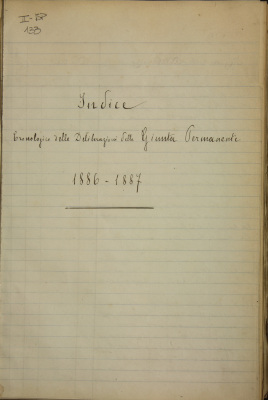 I-BP
133
Indice
Cronologico delle Deliberazioni della Giunta Permanente
1886-1887